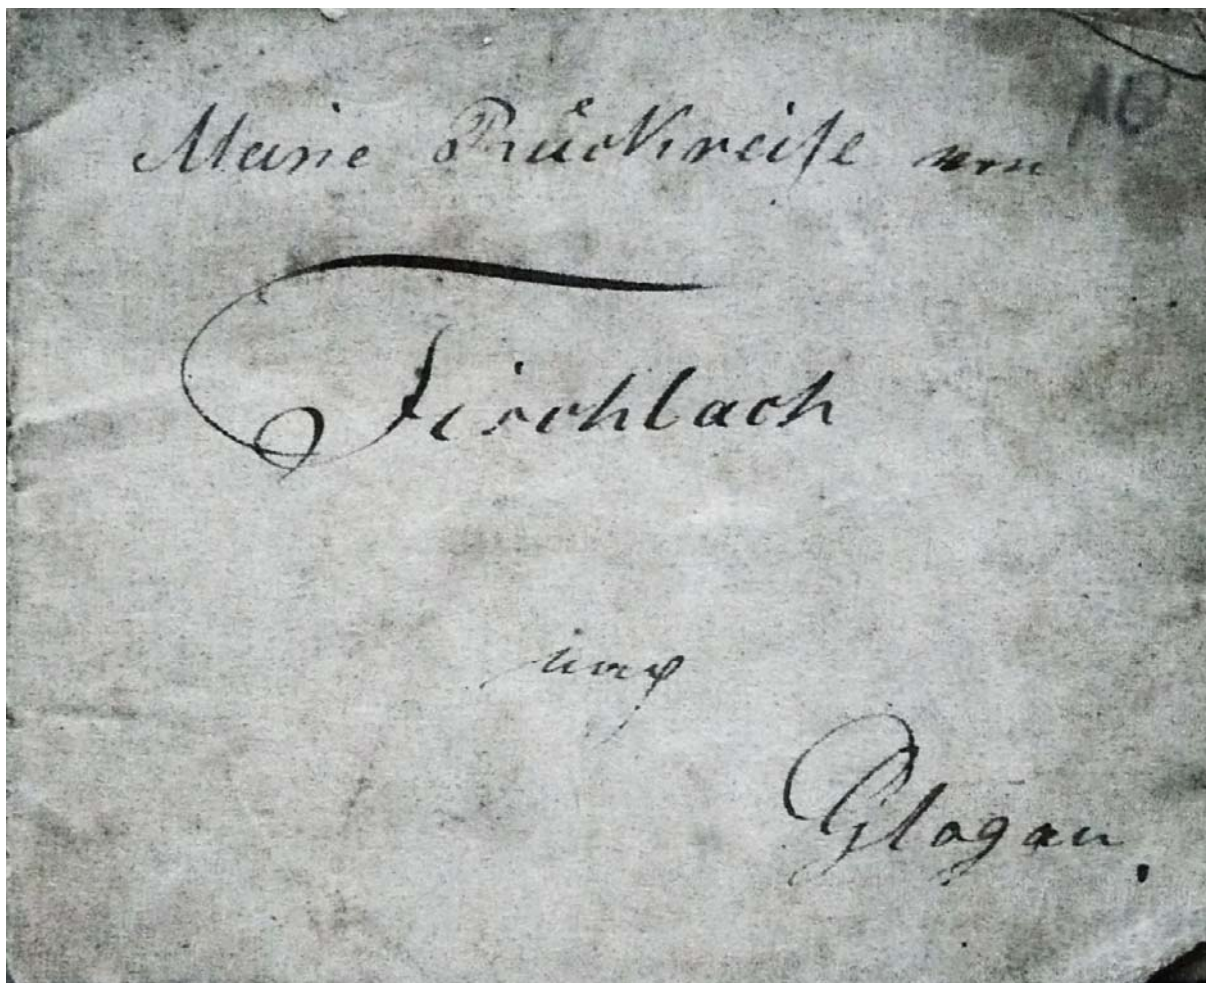 Meine Rückreiſe von
Fischbach
nach
Glogau.